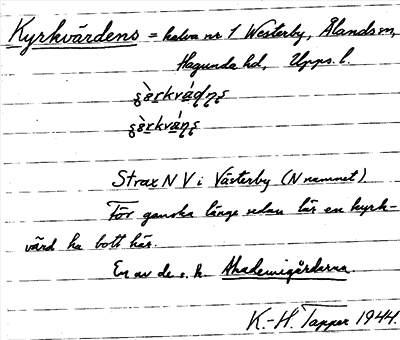 Kyrkvärdens = halva nr 1 Westerby, Ålands sn,
Hagunda hd, Upps. l.
Strax N V i Västerby (N namnet).
För ganska länge sedan lär en kyrk-
värd ha bott här.
En av de s. k. Akademigårdarna.
K.-H. Tapper 1944.